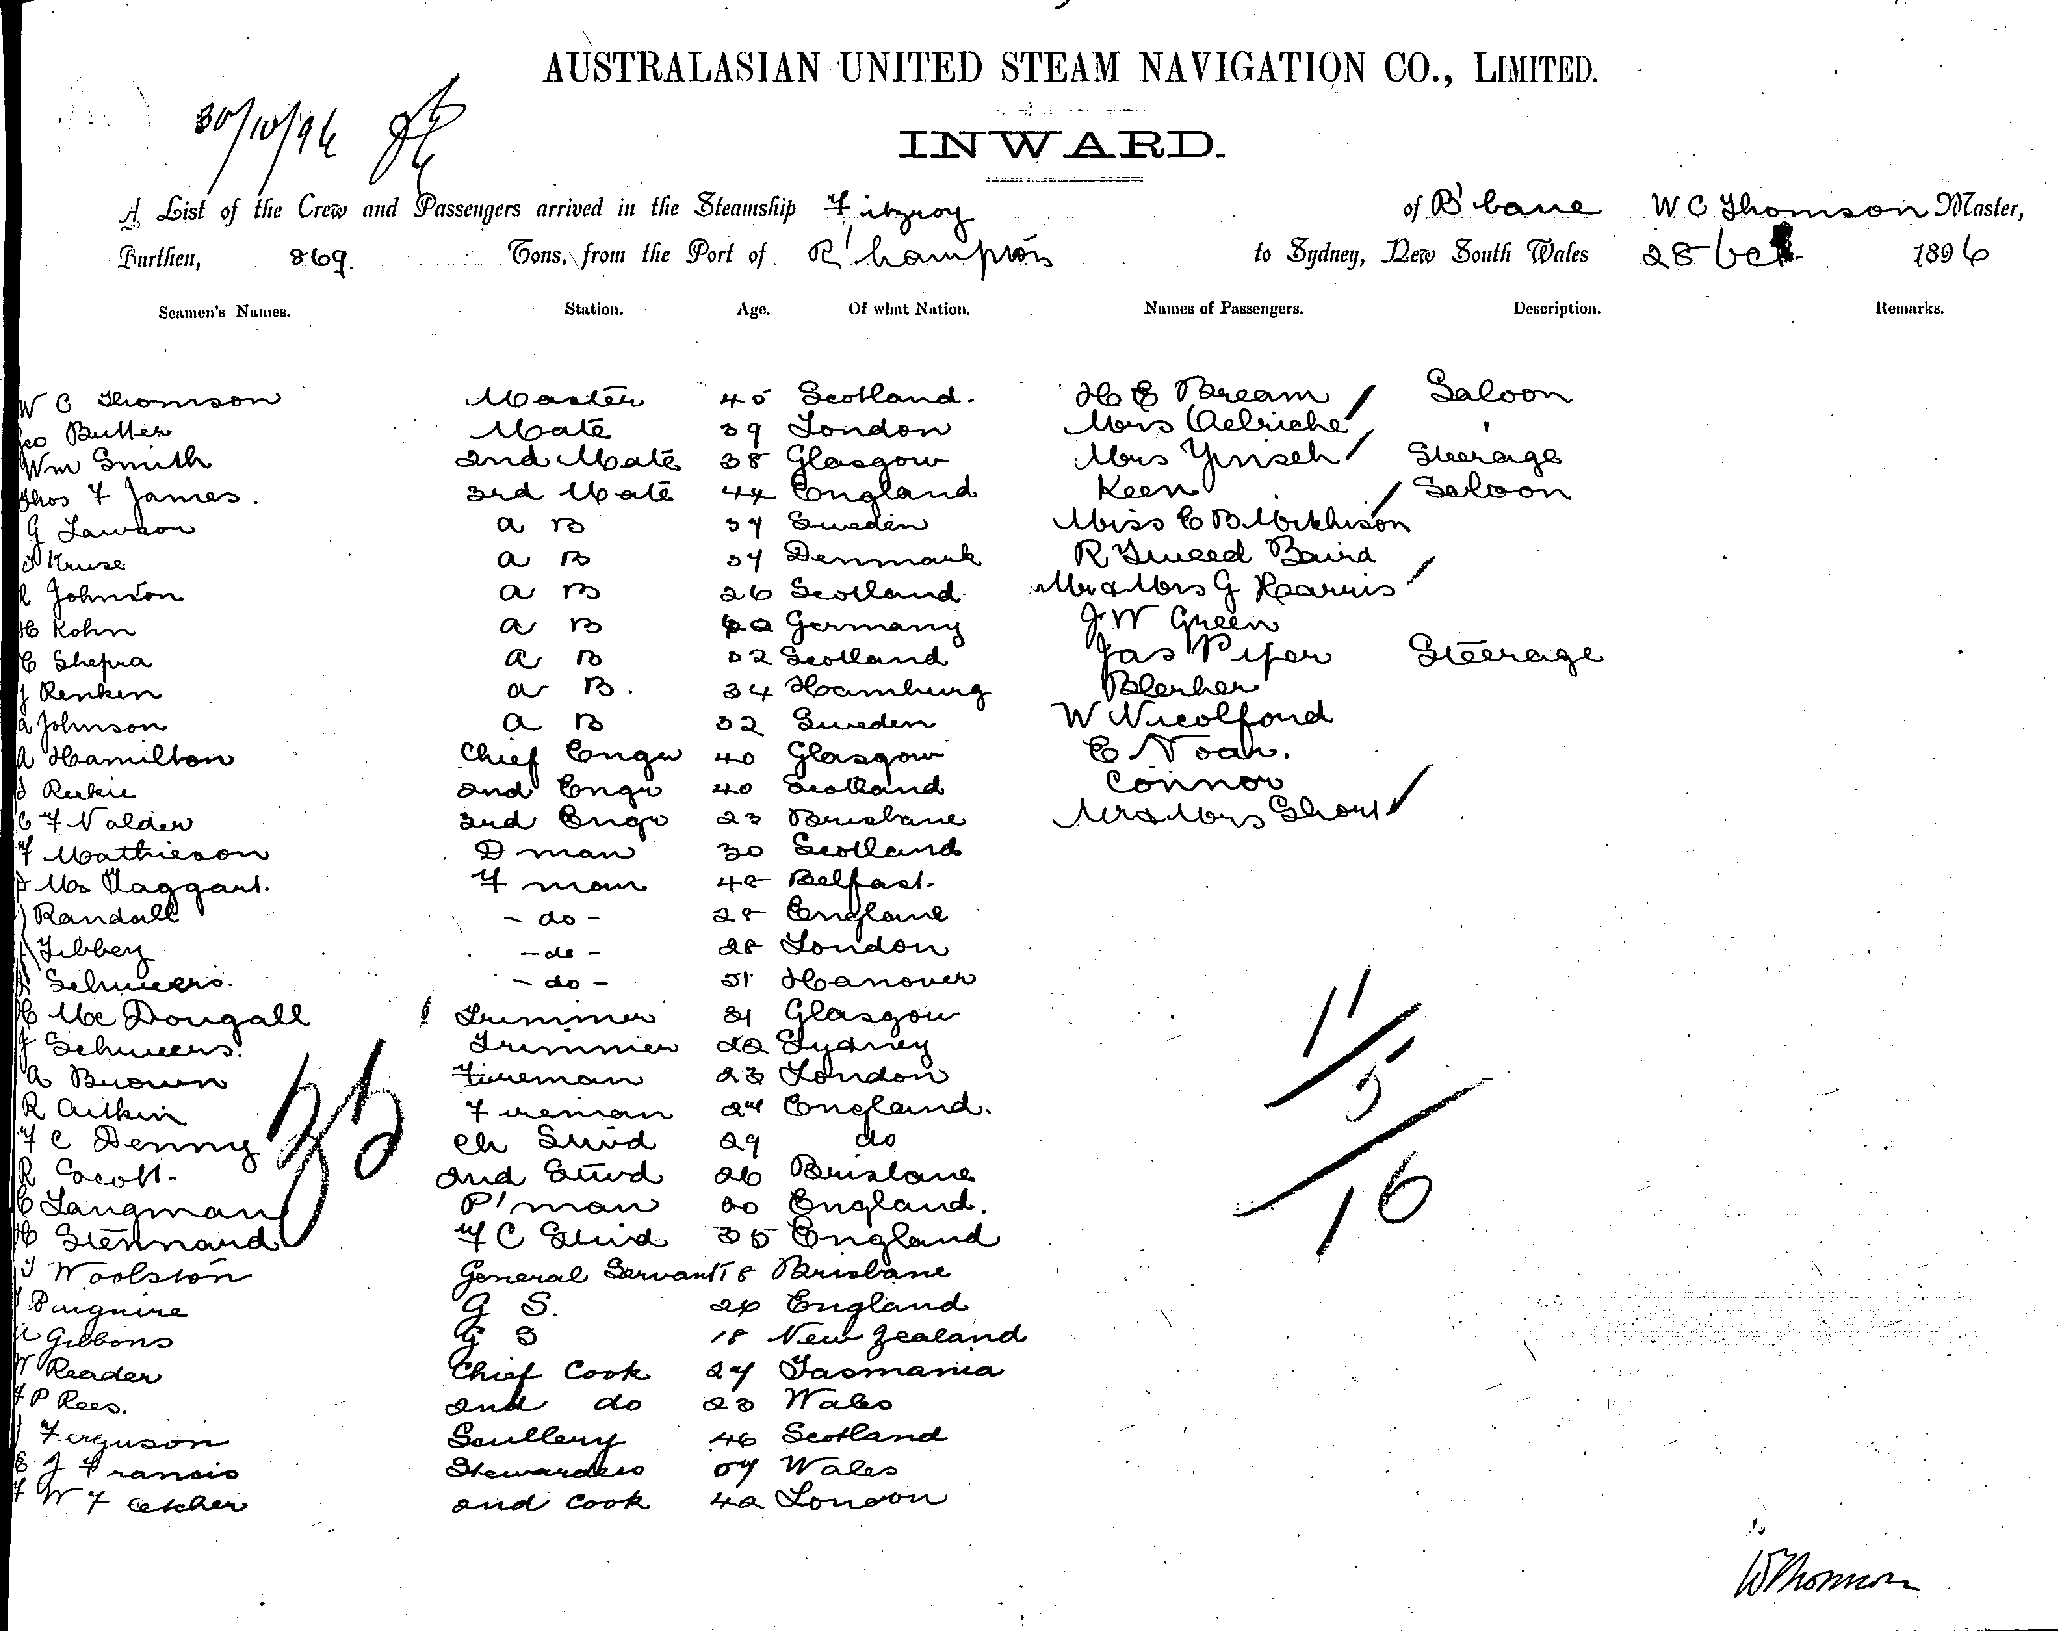 AUSTRALASIAN UNITED STEAM NAVIGATION CO., LIMITED.
30/10/96
INWARD.
A List of the Crew and Passengers arrived in the Steamship Fitzroy of B'bane W C Thomson Master,
Burthen, 869. Tons, from the Port of R'hampton to Sydney, New South Wales 28 Oct 1896
Seamen's Names. Station. Age. Of what Nation. Names of Passengers. Description. Remarks.
W C Thomson Master 45 Scotland. H E Bream Saloon
Geo Butler Mate 39 London Mrs Oelriche "
Wm Smith 2nd Mate 38 Glasgow Mrs Steerage
Thos F James. 3rd Mate 44 England Keen Saloon
G Lawson A B 37 Sweden Miss E B
Kruse A B 37 Denmark R Tweed Baird
Johnson A B 26 Scotland Mr & Mrs G Harris
H Kohn A B Germany J W Green
C A B 32 Scotland Jas Piper Steerage
J Renken A B. 34 Hamburg
A Johnson A B 32 Sweden W
A Hamilton Chief Engr 40 Glasgow E Noah.
Reekie 2nd Engr 40 Scotland Connor
C F Nalder 3rd Engr 23 Brisbane Mr & Mrs Short
F Mathieson D man 30 Scotland
Mc Taggart. F man Belfast.
Randall - do - 28 England
Libbey - do - 28 London
Schweers. - do - 31 Hanover
H Mc Dougall Trimmer 31 Glasgow
J Schweers. Trimmer 22 Sydney
A Brown Fireman 23 London
R Aitkin Fireman 27 England.
F C Denny Ch Stwd 29 do
R Cocott. 2nd Stwd 26 Brisbane
C Langman P'man 20 England.
H Stennard F C Stwd 35 England
35
Woolston General Servant 18 Brisbane
G S. England
Gibbons G S 18 New Zealand
W Reader Chief Cook 27 Tasmania
F P Rees. 2nd do 23 Wales
Ferguson Scullery 46 Scotland
E J Francis Stewardess 37 Wales
F W Fletcher 2nd Cook 42 London
11
5
16
W Thomson